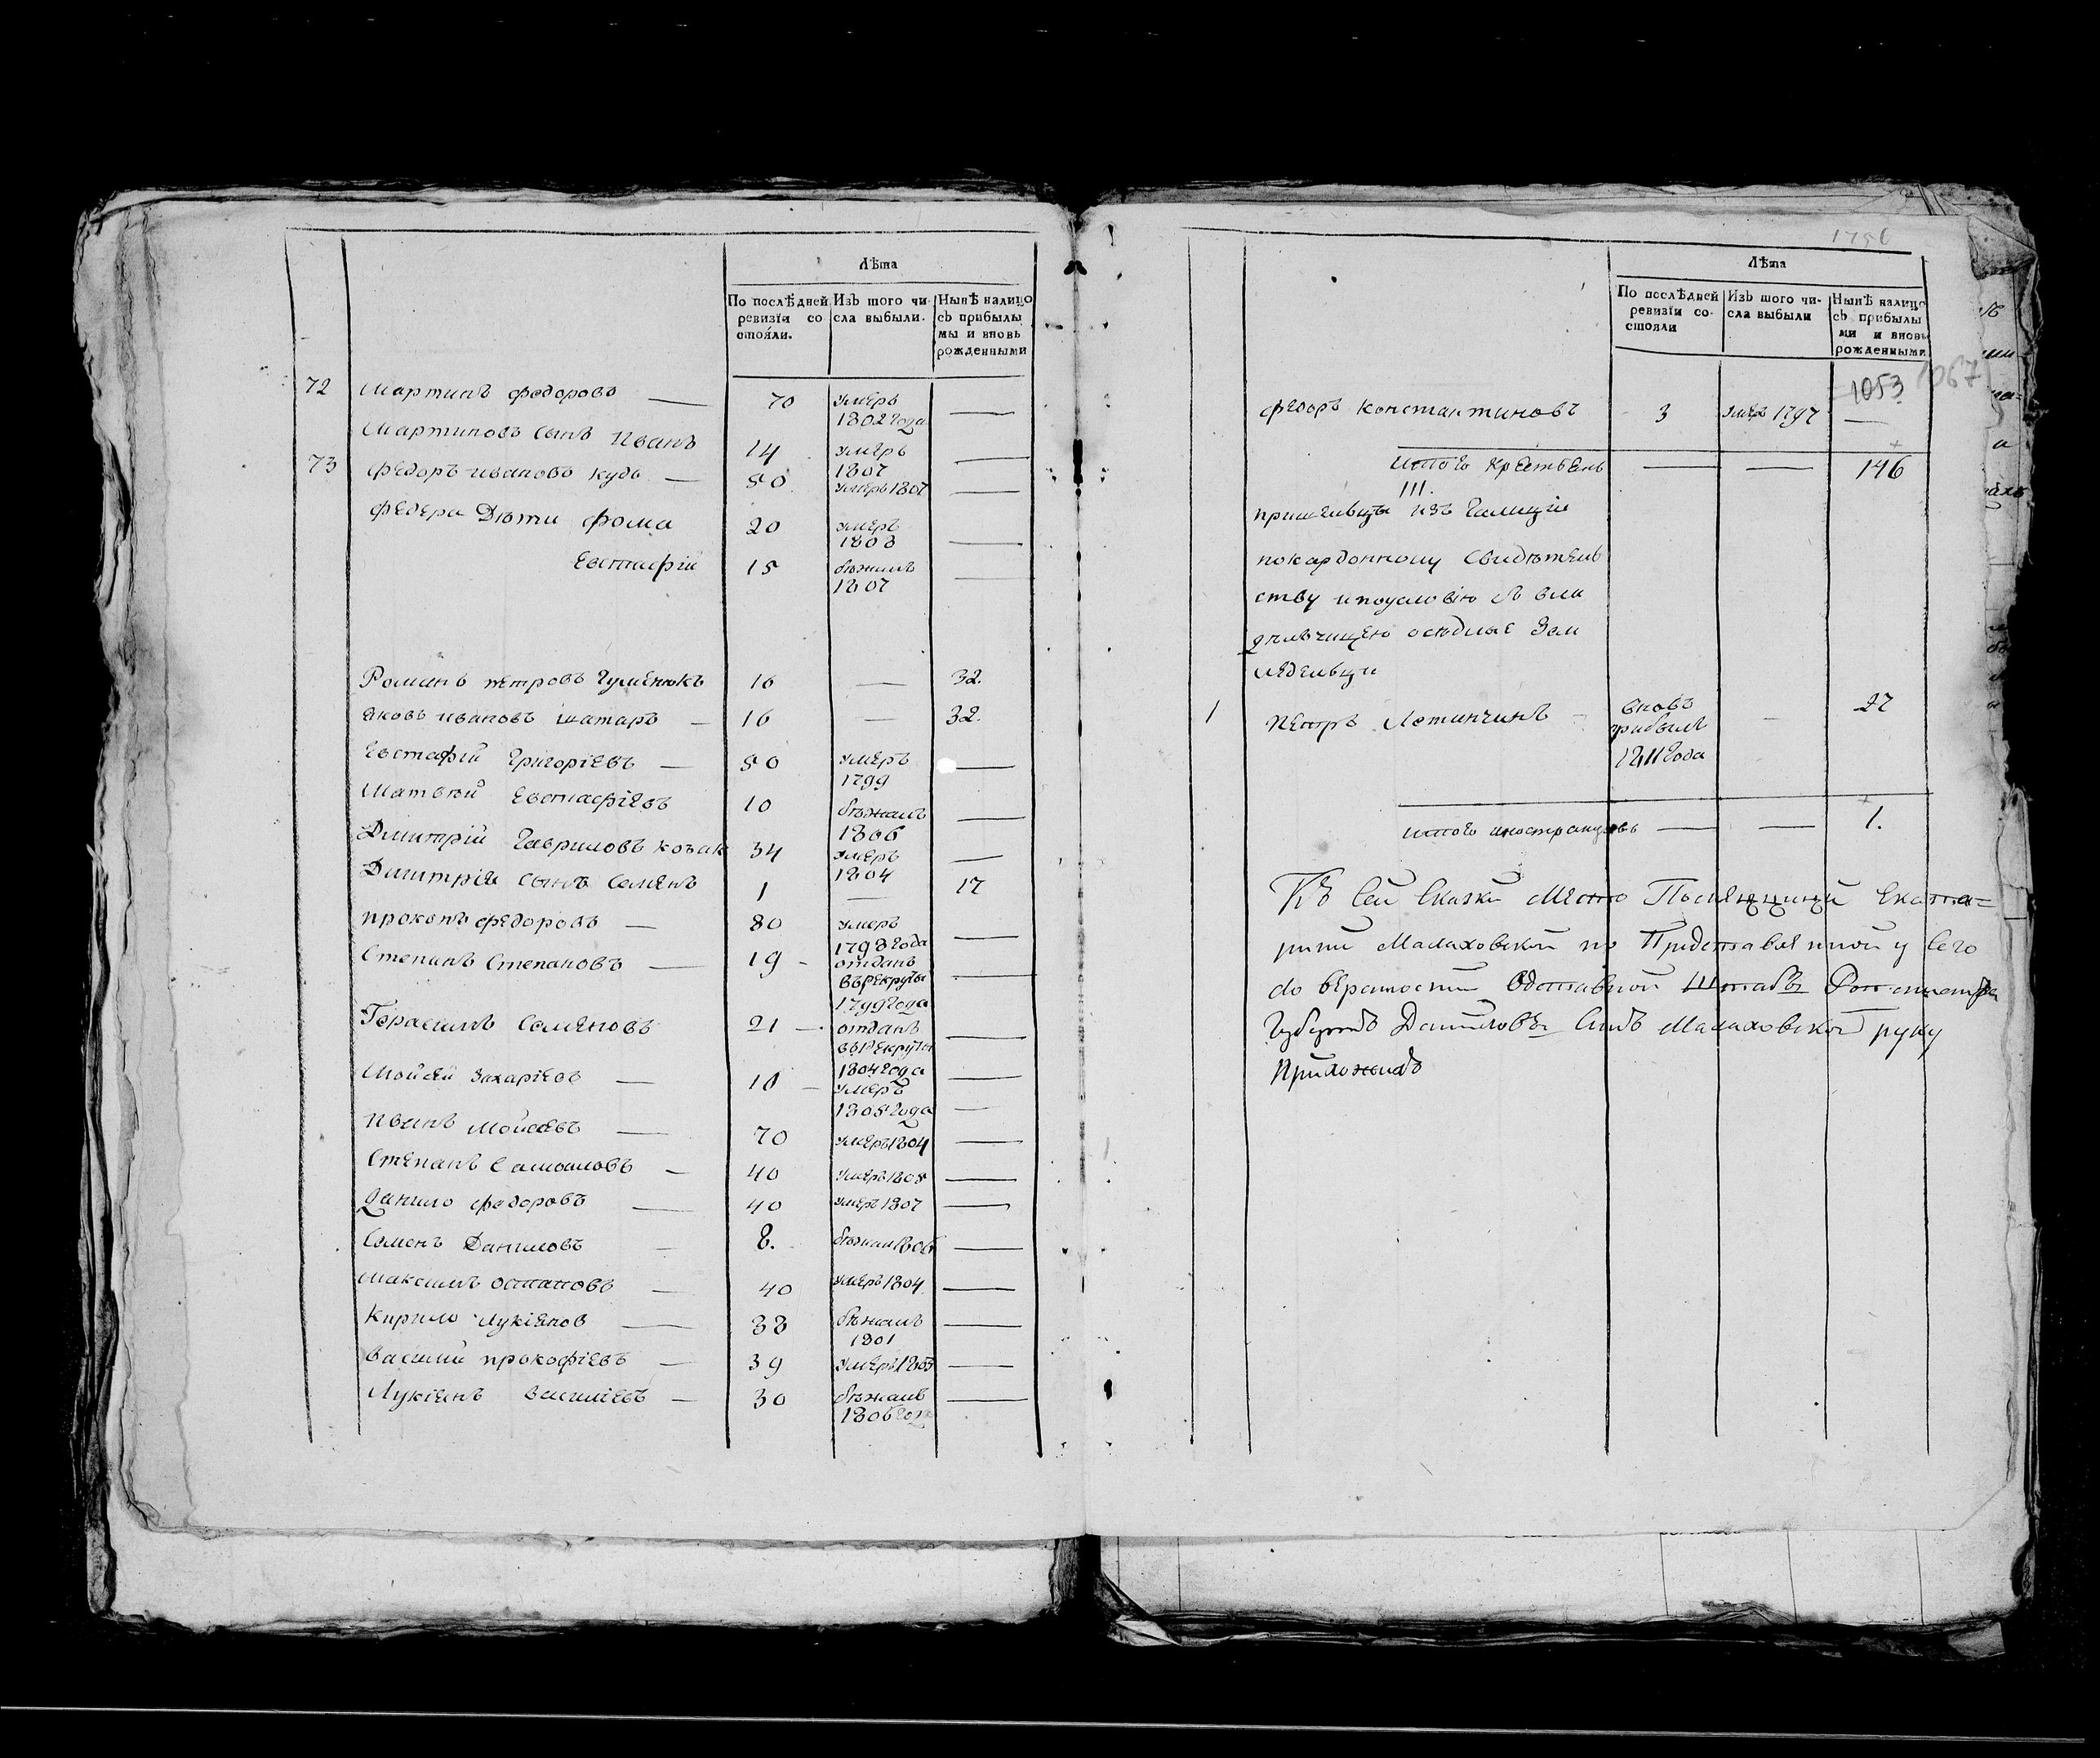 Лѣта
По послѣдней ревизіи состояли.
Изъ того числа выбыли.
Нынѣ налицо съ прибылыми и вновь рожденными
72 Мартинъ федоровъ — 70 умеръ 1802 года —
Мартиновъ сынъ Иванъ 14 умеръ 1807 —
73 федоръ ивановъ кудь — 50 умеръ 1807 —
федера Дѣти фома 20 умеръ 1808 —
Евстафій 15 бѣжалъ 1807 —
Романъ петровъ Гуменюкъ 16 — 32.
яковъ ивановъ шатаръ — 16 — 32.
Евстафій Григоріевъ — 50 умеръ 1799 —
Матвѣй Евстафіевъ 10 бѣжалъ 1806 —
Димитрій Гавриловъ козак 34 умеръ 1804 —
Дмитрія сынъ Семенъ 1 — 17
прокопъ федоровъ — 80 умеръ 1798 года —
Степанъ Степановъ — 19 — отданъ въ рекруты 1799 года —
Герасимъ Семеновъ 21 — отданъ въ рекруты 1804 года —
Мойсей Захаріевъ — 10 — умеръ 1805 года —
Иванъ Мойсеевъ — 70 умеръ 1804 —
Степанъ Самоиловъ — 40 умеръ 1805 —
Данило федоровъ — 40 умеръ 1807 —
Семенъ Даниловъ — 8. бѣжал 1806 —
Максимъ остаповъ — 40 умеръ 1804 —
Кирило Лукіянов — 38 бѣжалъ 1801 —
Василий прокофіевъ — 39 умеръ 1803 —
Лукіянъ Василіевъ — 30 бѣжалъ 1806 года —
1756
Лѣта
По послѣдней ревизіи состояли
Изъ того числа выбыли
Нынѣ налицо съ прибылыми и вновь рожденными
1053 1067
федоръ константиновъ 3 умеръ 1797 —
итого крестьянъ — — 146
III.
пришельцы изъ Галиціи
покардонному свидѣтель
ству и поусловію съ вла
дѣльчицею осѣдлые зем
ледельци
1 петръ Летинчинъ — вновъ прибылъ 1811 года — 27
итого иностранцовъ — — 1.
Къ сей сказки Место Помещицы Екате=
рины Малаховской по Придставленной у сего
до верености Одставной Штабъ Ротмистръ
Даниловъ Сынъ Малаховской руку
Приложилъ